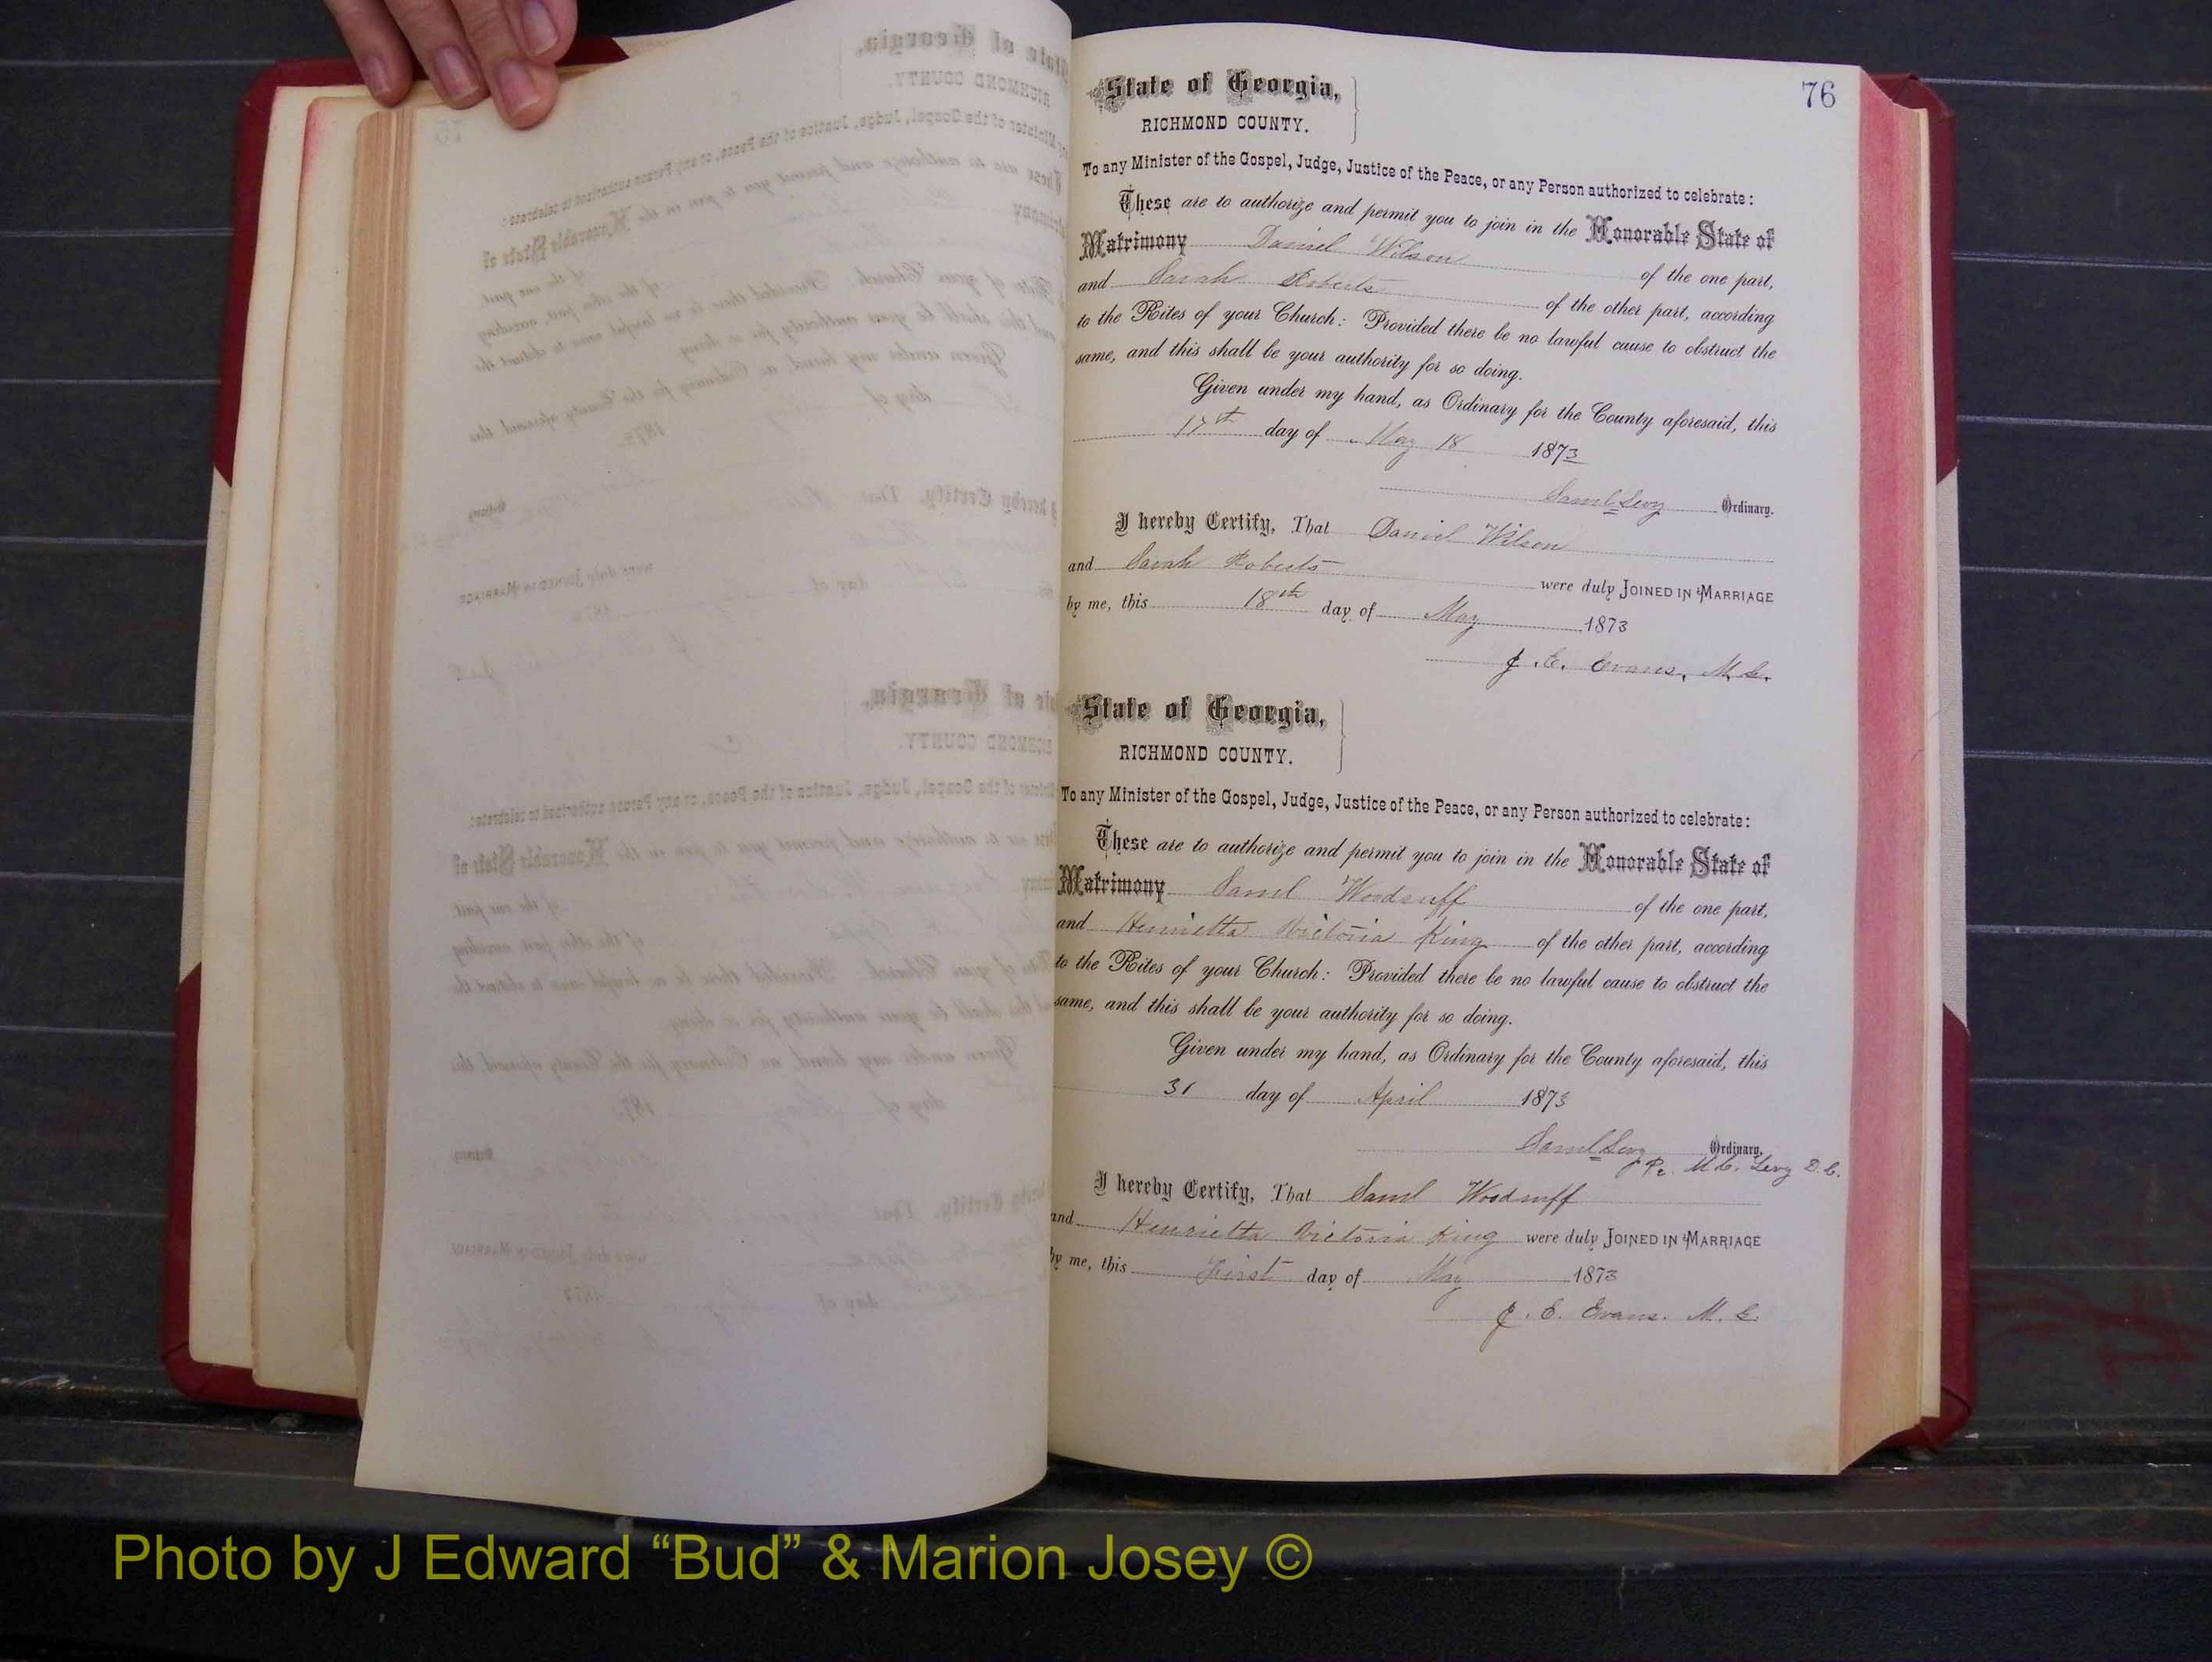 76
State of Georgia,
RICHMOND COUNTY.
To any Minister of the Gospel, Judge, Justice of the Peace, or any Person authorized to celebrate:
These are to authorize and permit you to join in the Honorable State of
Matrimony Daniel Wilson of the one part,
and Sarah Roberts of the other part, according
to the Rites of your Church: Provided there be no lawful cause to obstruct the
same, and this shall be your authority for so doing.
Given under my hand, as Ordinary for the County aforesaid, this
17th day of May 18 1873
Saml Levy Ordinary.
I hereby Certify, That Daniel Wilson
and Sarah Roberts were duly JOINED IN MARRIAGE
by me, this 18th day of May 1873
J. E. Evans, M. G.
State of Georgia,
RICHMOND COUNTY.
To any Minister of the Gospel, Judge, Justice of the Peace, or any Person authorized to celebrate:
These are to authorize and permit you to join in the Honorable State of
Matrimony Saml Woodruff of the one part,
and Henrietta Victoria King of the other part, according
to the Rites of your Church: Provided there be no lawful cause to obstruct the
same, and this shall be your authority for so doing.
Given under my hand, as Ordinary for the County aforesaid, this
31 day of April 1873
Saml Levy Ordinary.
Pr. M.C. Levy D.C.
I hereby Certify, That Saml Woodruff
and Henrietta Victoria King were duly JOINED IN MARRIAGE
by me, this First day of May 1873
J. E. Evans. M. G.
Photo by J Edward “Bud” & Marion Josey ©